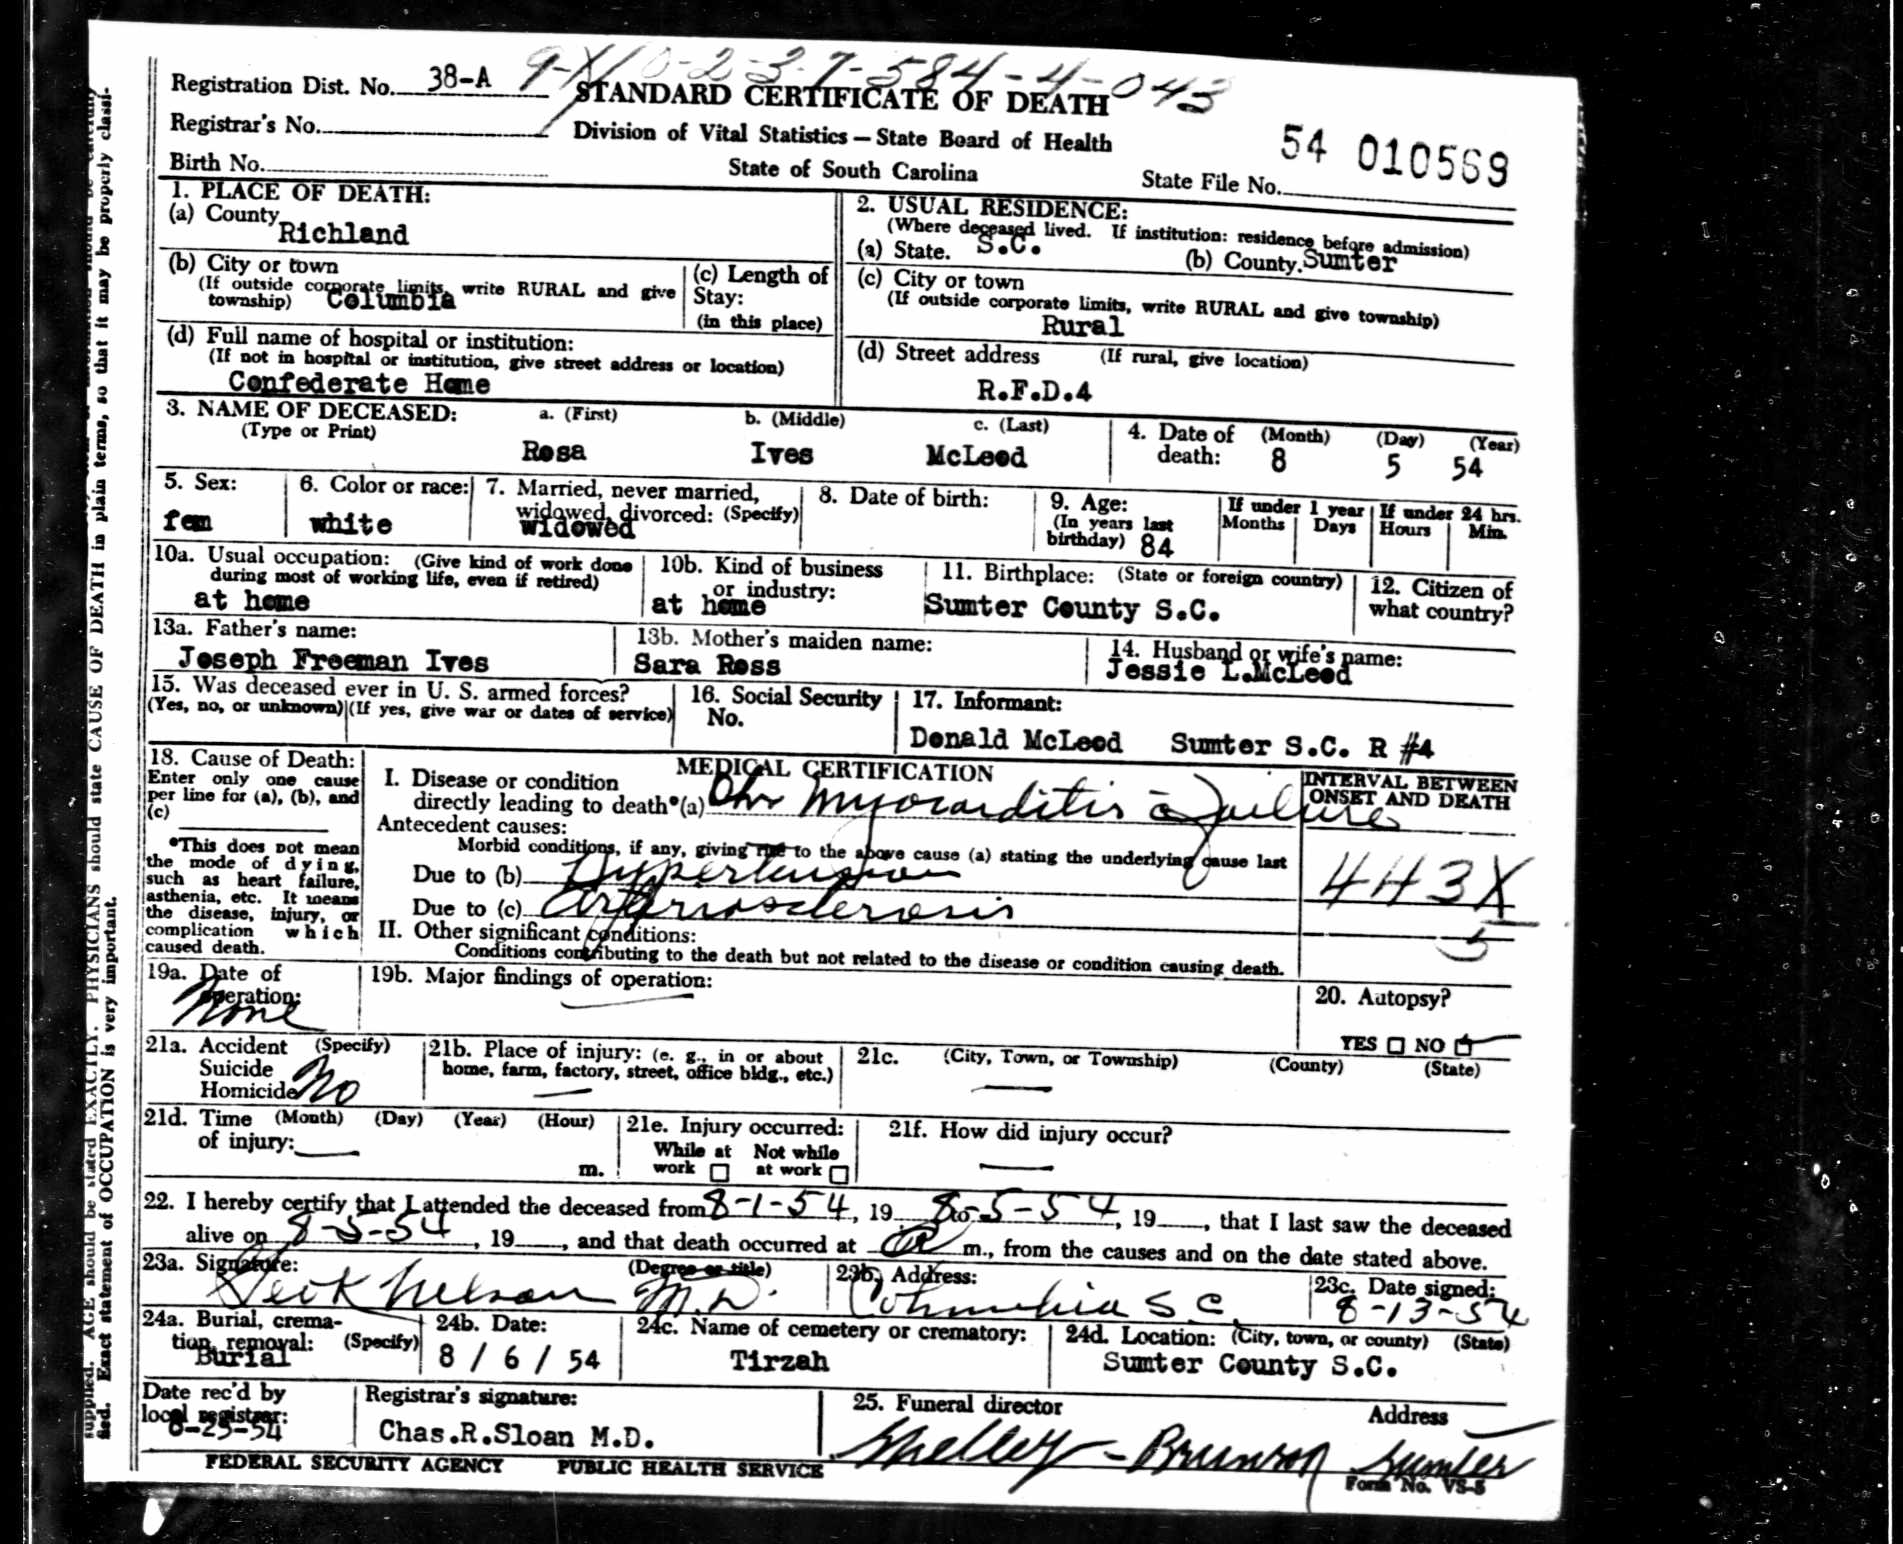 9-X10-2-3-7-584-4-043
Registration Dist. No. 38-A
STANDARD CERTIFICATE OF DEATH
Registrar's No.
Division of Vital Statistics — State Board of Health
54 010569
Birth No.
State of South Carolina
State File No.
1. PLACE OF DEATH:
(a) County
Richland
2. USUAL RESIDENCE:
(Where deceased lived. If institution: residence before admission)
(a) State. S.C.
(b) County. Sumter
(b) City or town
(If outside corporate limits, write RURAL and give
township) Columbia
(c) Length of
Stay:
(in this place)
(c) City or town
(If outside corporate limits, write RURAL and give township)
Rural
(d) Full name of hospital or institution:
(If not in hospital or institution, give street address or location)
Confederate Home
(d) Street address (If rural, give location)
R.F.D.4
3. NAME OF DECEASED:
(Type or Print)
a. (First) b. (Middle) c. (Last)
Rosa Ives McLeod
4. Date of (Month) (Day) (Year)
death: 8 5 54
5. Sex:
fem
6. Color or race:
white
7. Married, never married,
widowed, divorced: (Specify)
widowed
8. Date of birth:
9. Age:
(In years last
birthday) 84
If under 1 year
Months Days
If under 24 hrs.
Hours Min.
10a. Usual occupation: (Give kind of work done
during most of working life, even if retired)
at home
10b. Kind of business
or industry:
at home
11. Birthplace: (State or foreign country)
Sumter County S.C.
12. Citizen of
what country?
13a. Father's name:
Joseph Freeman Ives
13b. Mother's maiden name:
Sara Ross
14. Husband or wife's name:
Jessie L.McLeod
15. Was deceased ever in U. S. armed forces?
(Yes, no, or unknown) (If yes, give war or dates of service)
16. Social Security
No.
17. Informant:
Donald McLeod Sumter S.C. R #4
18. Cause of Death:
Enter only one cause
per line for (a), (b), and
(c)
*This does not mean
the mode of dying,
such as heart failure,
asthenia, etc. It means
the disease, injury, or
complication which
caused death.
MEDICAL CERTIFICATION
I. Disease or condition
directly leading to death*(a) Chr Myocarditis c̄ Failure
Antecedent causes:
Morbid conditions, if any, giving rise to the above cause (a) stating the underlying cause last
Due to (b) Hypertension
Due to (c) Arteriosclerosis
II. Other significant conditions:
Conditions contributing to the death but not related to the disease or condition causing death.
INTERVAL BETWEEN
ONSET AND DEATH
443X
5
19a. Date of
operation:
None
19b. Major findings of operation:
20. Autopsy?
YES NO
21a. Accident (Specify)
Suicide
Homicide No
21b. Place of injury: (e. g., in or about
home, farm, factory, street, office bldg., etc.)
21c. (City, Town, or Township) (County) (State)
21d. Time (Month) (Day) (Year) (Hour)
of injury:
m.
21e. Injury occurred:
While at Not while
work at work
21f. How did injury occur?
22. I hereby certify that I attended the deceased from 8-1-54, 19 to 8-5-54, 19, that I last saw the deceased
alive on 8-5-54, 19, and that death occurred at m., from the causes and on the date stated above.
23a. Signature: (Degree or title)
Nelson M.D.
23b. Address:
Columbia S C
23c. Date signed:
8-13-54
24a. Burial, crema-
tion, removal: (Specify)
Burial
24b. Date:
8 / 6 / 54
24c. Name of cemetery or crematory:
Tirzah
24d. Location: (City, town, or county) (State)
Sumter County S.C.
Date rec'd by
local registrar:
8-23-54
Registrar's signature:
Chas.R.Sloan M.D.
25. Funeral director Address
Shelley - Brunson Sumter
FEDERAL SECURITY AGENCY PUBLIC HEALTH SERVICE
Form No. VS-5
supplied. AGE should be stated EXACTLY. PHYSICIANS should state CAUSE OF DEATH in plain terms, so that it may be properly classi-
fied. Exact statement of OCCUPATION is very important.